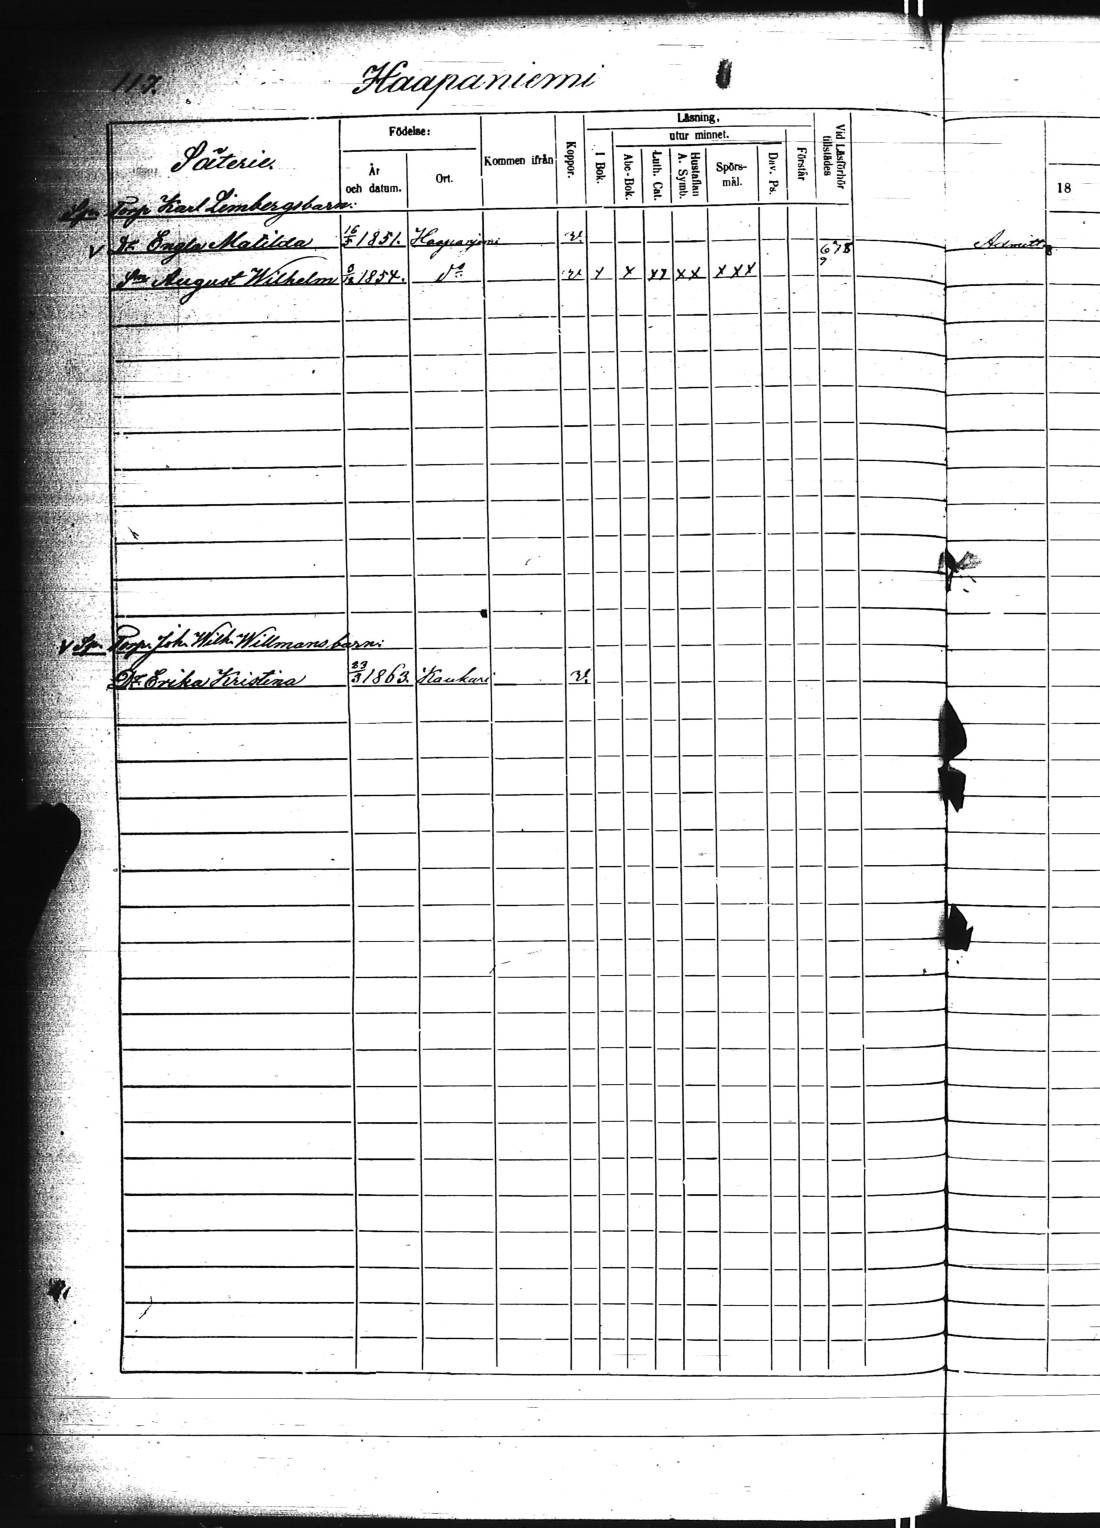 117. Haapaniemi
Säterie.
Födelse:
År och datum.
Ort.
Kommen ifrån
Koppor.
Läsning,
I Bok.
utur minnet.
Abc-Bok.
Luth. Cat.
Hustaflan A. Symb.
Spörs-mål.
Dav. Ps.
Förstår
Vid Läsförhör tillstädes
18
Torp Karl Limbergs barn:
v Dr. Engla Matilda 16/5 1851. Haapaniemi v. 678 Admitt
Sn August Wilhelm 1854. Do v. x x xx xx xxx 9
v Sp. Torp. Joh. Wilh. Willmans barn:
Dr. Erika Kristina 23/3 1863. Kaukuri v.